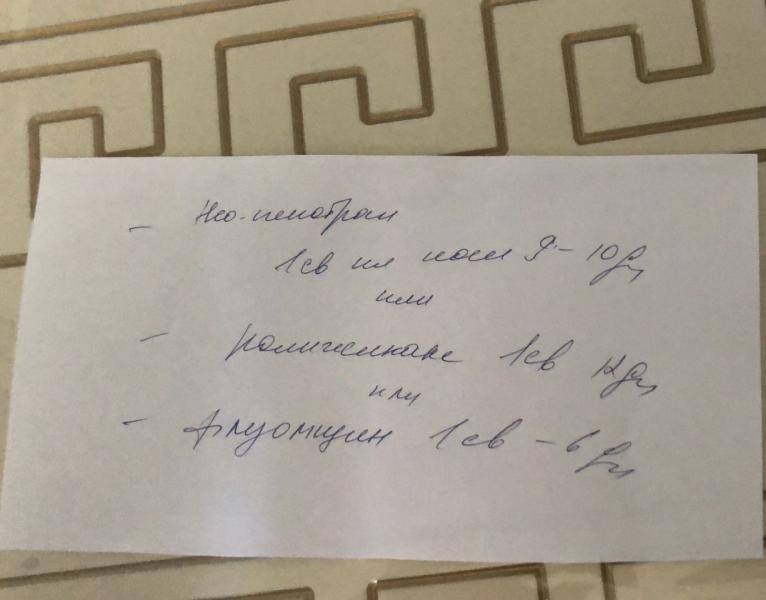 - Нео-пенотран
1 св на ночь 9-10 дн
или
- полижинакс 1 св 12 дн
или
- флуомицин 1 св - 6 дн